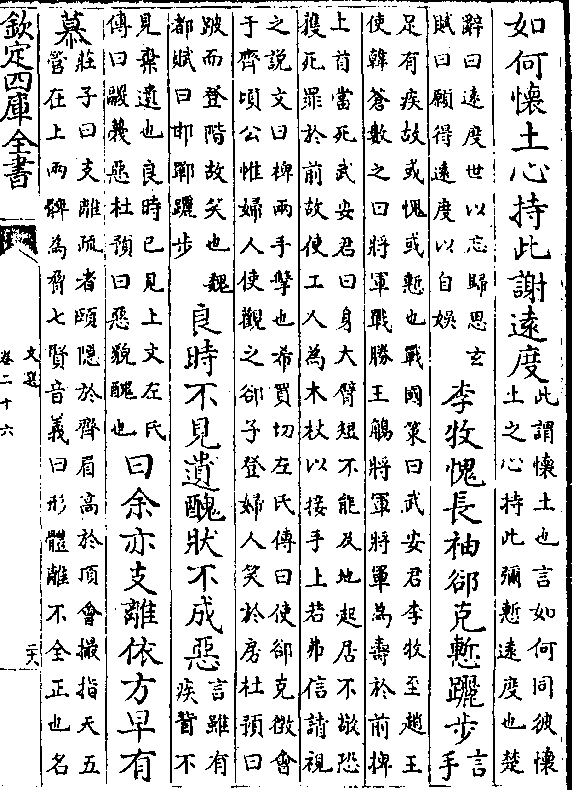 如何懷土心持此謝遠度此謂懷土也言如何同彼懷
土之心持此彌慙遠度也楚
辭曰遠度世以忘歸思玄
賦曰願得遠度以自娛李牧愧長袖郤克慙躧步言
手
足有疾故或愧或慙也戰國策曰武安君李牧至趙王
使韓蒼數之曰將軍戰勝王觴將軍將軍為壽於前捭
上首當死武安君曰身大臂短不能及地起居不敬恐
獲死罪於前故使工人為木杖以接手上若弗信請視
之說文曰捭兩手擊也希買切左氏傳曰使郤克徵會
于齊頃公惟婦人使觀之郤子登婦人笑於房杜預曰
跛而登階故笑也魏
都賦曰邯鄲躧步良時不見遺醜狀不成惡言雖有
疾皆不
見棄遺也良時已見上文左氏
傳曰鬷蔑惡杜預曰惡貌醜也曰余亦支離依方早有
慕莊子曰支離疏者頤隱於齊肩高於頂會撮指天五
管在上兩髀為脅七賢音義曰形體離不全正也名
欽定四庫全書
文選
卷二十六
二十八